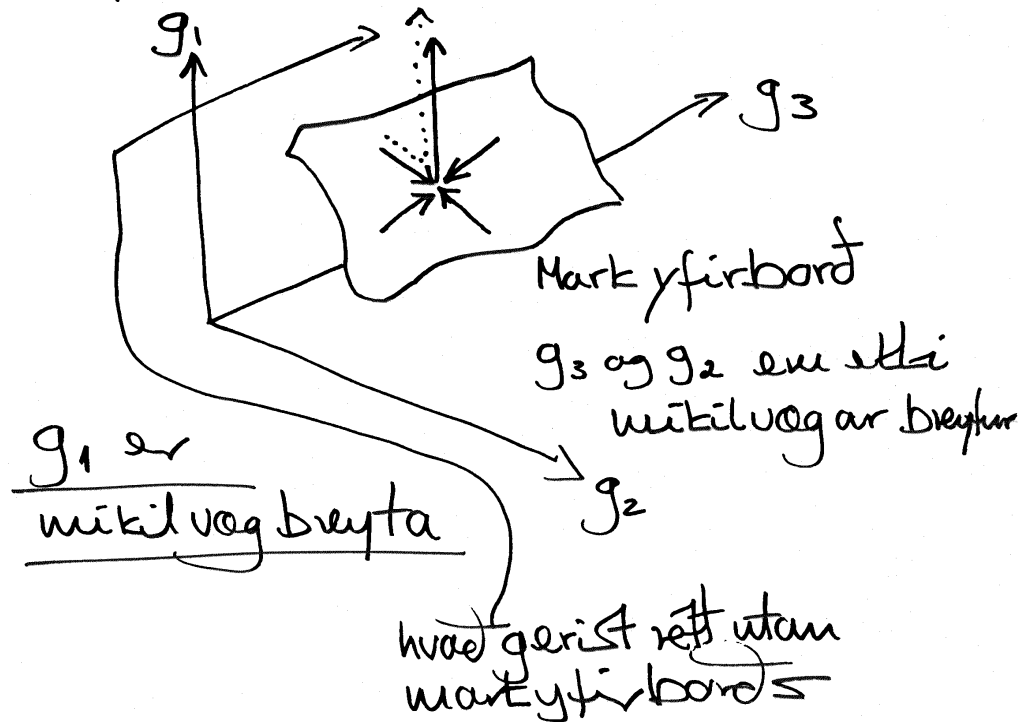 g1
g3
Markyfirborð
g3 og g2 eru ekki
mikilvægar breytur
g1 er
mikilvæg breyta
g2
hvað gerist rétt utan
markyfirborðs